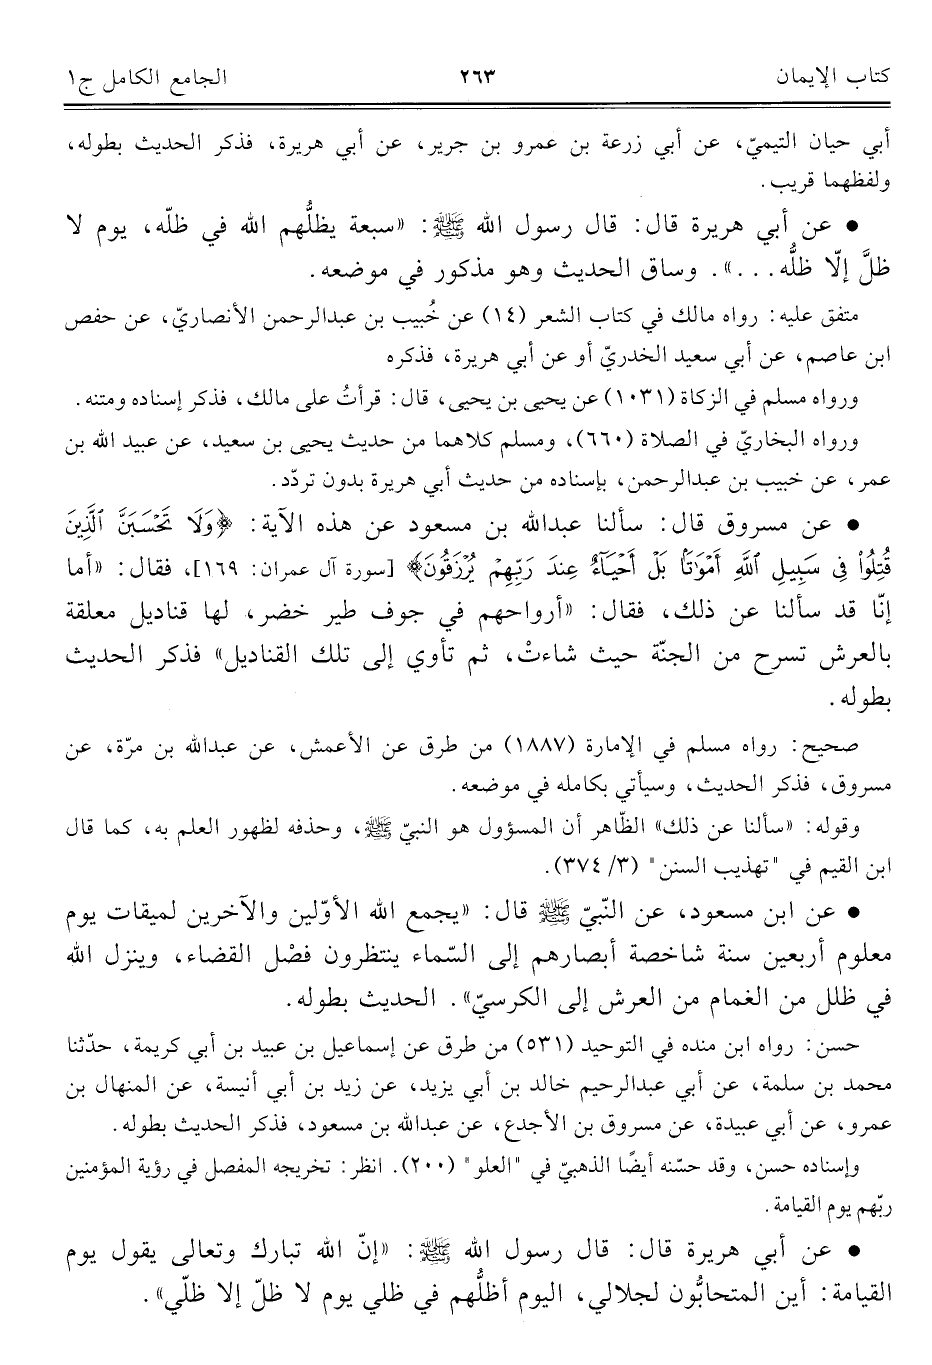 كتاب الإيمان ٢٦٣ الجامع الكامل ج١
أبي حيان التيميّ، عن أبي زرعة بن عمرو بن جرير، عن أبي هريرة، فذكر الحديث بطوله،
ولفظهما قريب.
• عن أبي هريرة قال: قال رسول الله ﷺ: «سبعة يظلُّهم الله في ظلّه، يوم لا
ظلَّ إلّا ظلُّه...». وساق الحديث وهو مذكور في موضعه.
متفق عليه: رواه مالك في كتاب الشعر (١٤) عن خُبيب بن عبدالرحمن الأنصاريّ، عن حفص
ابن عاصم، عن أبي سعيد الخدريّ أو عن أبي هريرة، فذكره
ورواه مسلم في الزكاة (١٠٣١) عن يحيى بن يحيى، قال: قرأتُ على مالك، فذكر إسناده ومتنه.
ورواه البخاريّ في الصلاة (٦٦٠)، ومسلم كلاهما من حديث يحيى بن سعيد، عن عبيد الله بن
عمر، عن خبيب بن عبدالرحمن، بإسناده من حديث أبي هريرة بدون تردّد.
• عن مسروق قال: سألنا عبدالله بن مسعود عن هذه الآية: ﴿وَلَا تَحْسَبَنَّ ٱلَّذِينَ
قُتِلُوا۟ فِى سَبِيلِ ٱللَّهِ أَمْوَٰتًۢا بَلْ أَحْيَآءٌ عِندَ رَبِّهِمْ يُرْزَقُونَ﴾ [سورة آل عمران: ١٦٩]، فقال: «أما
إنّا قد سألنا عن ذلك، فقال: «أرواحهم في جوف طير خضر، لها قناديل معلقة
بالعرش تسرح من الجنّة حيث شاءتْ، ثم تأوي إلى تلك القناديل» فذكر الحديث
بطوله.
صحيح: رواه مسلم في الإمارة (١٨٨٧) من طرق عن الأعمش، عن عبدالله بن مرّة، عن
مسروق، فذكر الحديث، وسيأتي بكامله في موضعه.
وقوله: «سألنا عن ذلك» الظّاهر أن المسؤول هو النبيّ ﷺ، وحذفه لظهور العلم به، كما قال
ابن القيم في "تهذيب السنن" (٣/ ٣٧٤).
• عن ابن مسعود، عن النّبيّ ﷺ قال: «يجمع الله الأوّلين والآخرين لميقات يوم
معلوم أربعين سنة شاخصة أبصارهم إلى السّماء ينتظرون فصْل القضاء، وينزل الله
في ظلل من الغمام من العرش إلى الكرسيّ». الحديث بطوله.
حسن: رواه ابن منده في التوحيد (٥٣١) من طرق عن إسماعيل بن عبيد بن أبي كريمة، حدّثنا
محمد بن سلمة، عن أبي عبدالرحيم خالد بن أبي يزيد، عن زيد بن أبي أنيسة، عن المنهال بن
عمرو، عن أبي عبيدة، عن مسروق بن الأجدع، عن عبدالله بن مسعود، فذكر الحديث بطوله.
وإسناده حسن، وقد حسّنه أيضًا الذهبيّ في "العلو" (٢٠٠). انظر: تخريجه المفصل في رؤية المؤمنين
ربّهم يوم القيامة.
• عن أبي هريرة قال: قال رسول الله ﷺ: «إنّ الله تبارك وتعالى يقول يوم
القيامة: أين المتحابُّون لجلالي، اليوم أظلُّهم في ظلي يوم لا ظلّ إلا ظلّي».